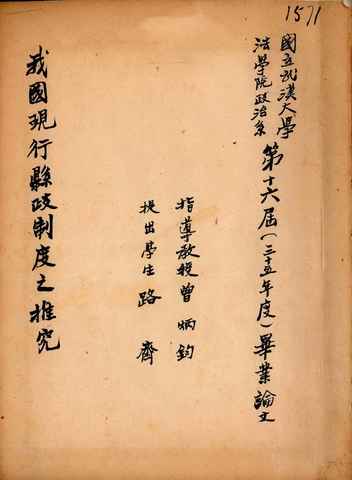 1571
國立武漢大學
法學院政治系
第十六屆(三十五年度)畢業論文
指導教授曾炳鈞
提出學生路齊
我國現行縣政制度之推究